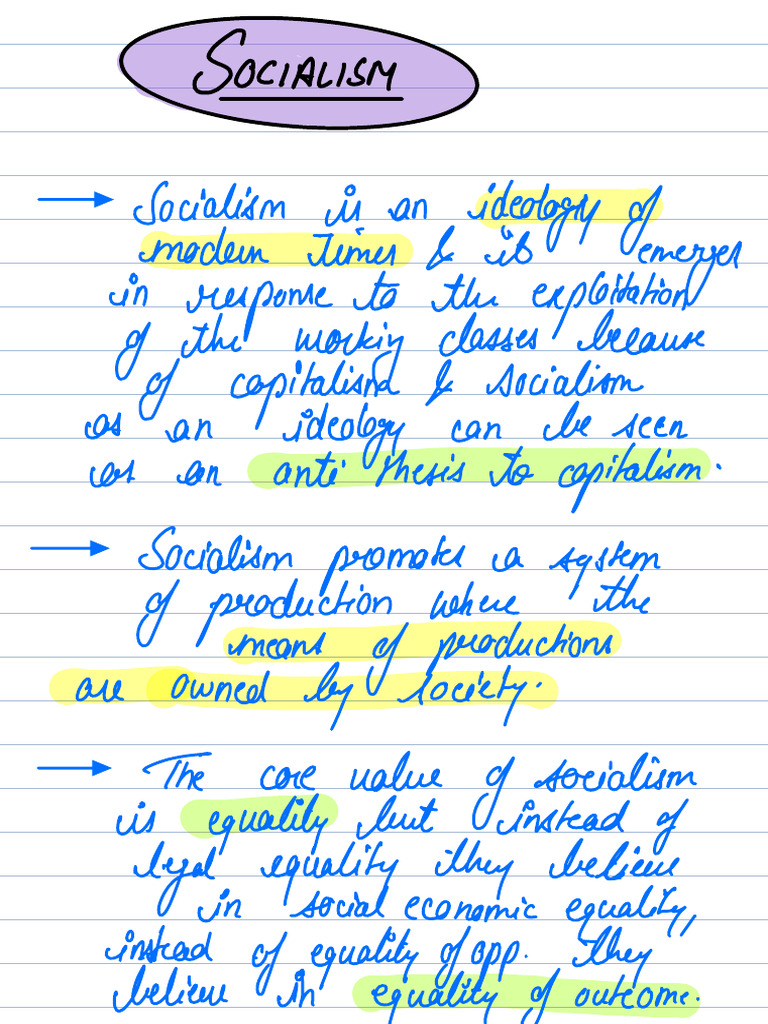 SOCIALISM
→ Socialism is an ideology of
modern Times & it emerges
in response to the exploitation
of the working classes because
of capitalism & socialism
as an ideology can be seen
as an anti thesis to capitalism.
→ Socialism promotes a system
of production where the
means of productions
are owned by society.
→ The core value of socialism
is equality but instead of
legal equality they believe
in social economic equality,
instead of equality of opp. they
believe in equality of outcome.